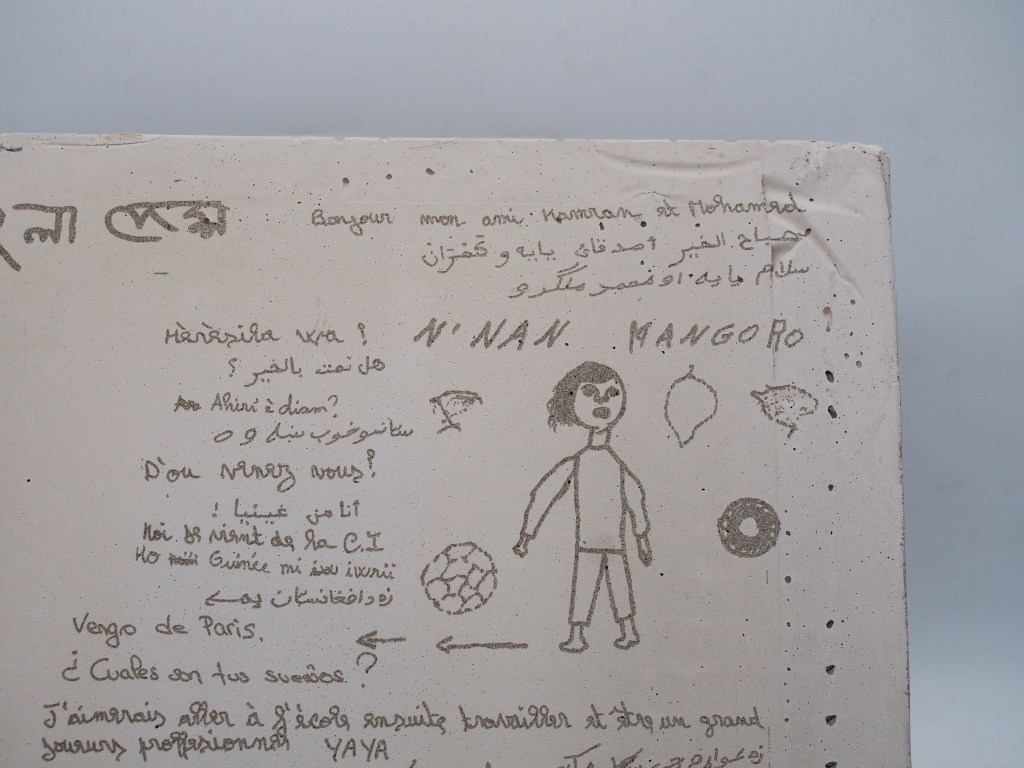 Bonjour mon ami Kamran et Mohamed
صباح الخير أصدقائي يايه و
سلام يايه او محمد ملگرو
Hèrèsira wa ?
N'NAN. MANGORO
هل نمت بالخير ؟
Ahiri è diam?
D'ou venez vous?
أنا من غينيا !
Moi je vient de la C.I
Mo Guinée mi iwrii
زه د افغانستان یم
Vengo de Paris.
¿ Cuales son tus sueños ?
J'aimerais aller à l'école ensuite travailler et être un grand
joueurs proffesionnel YAYA